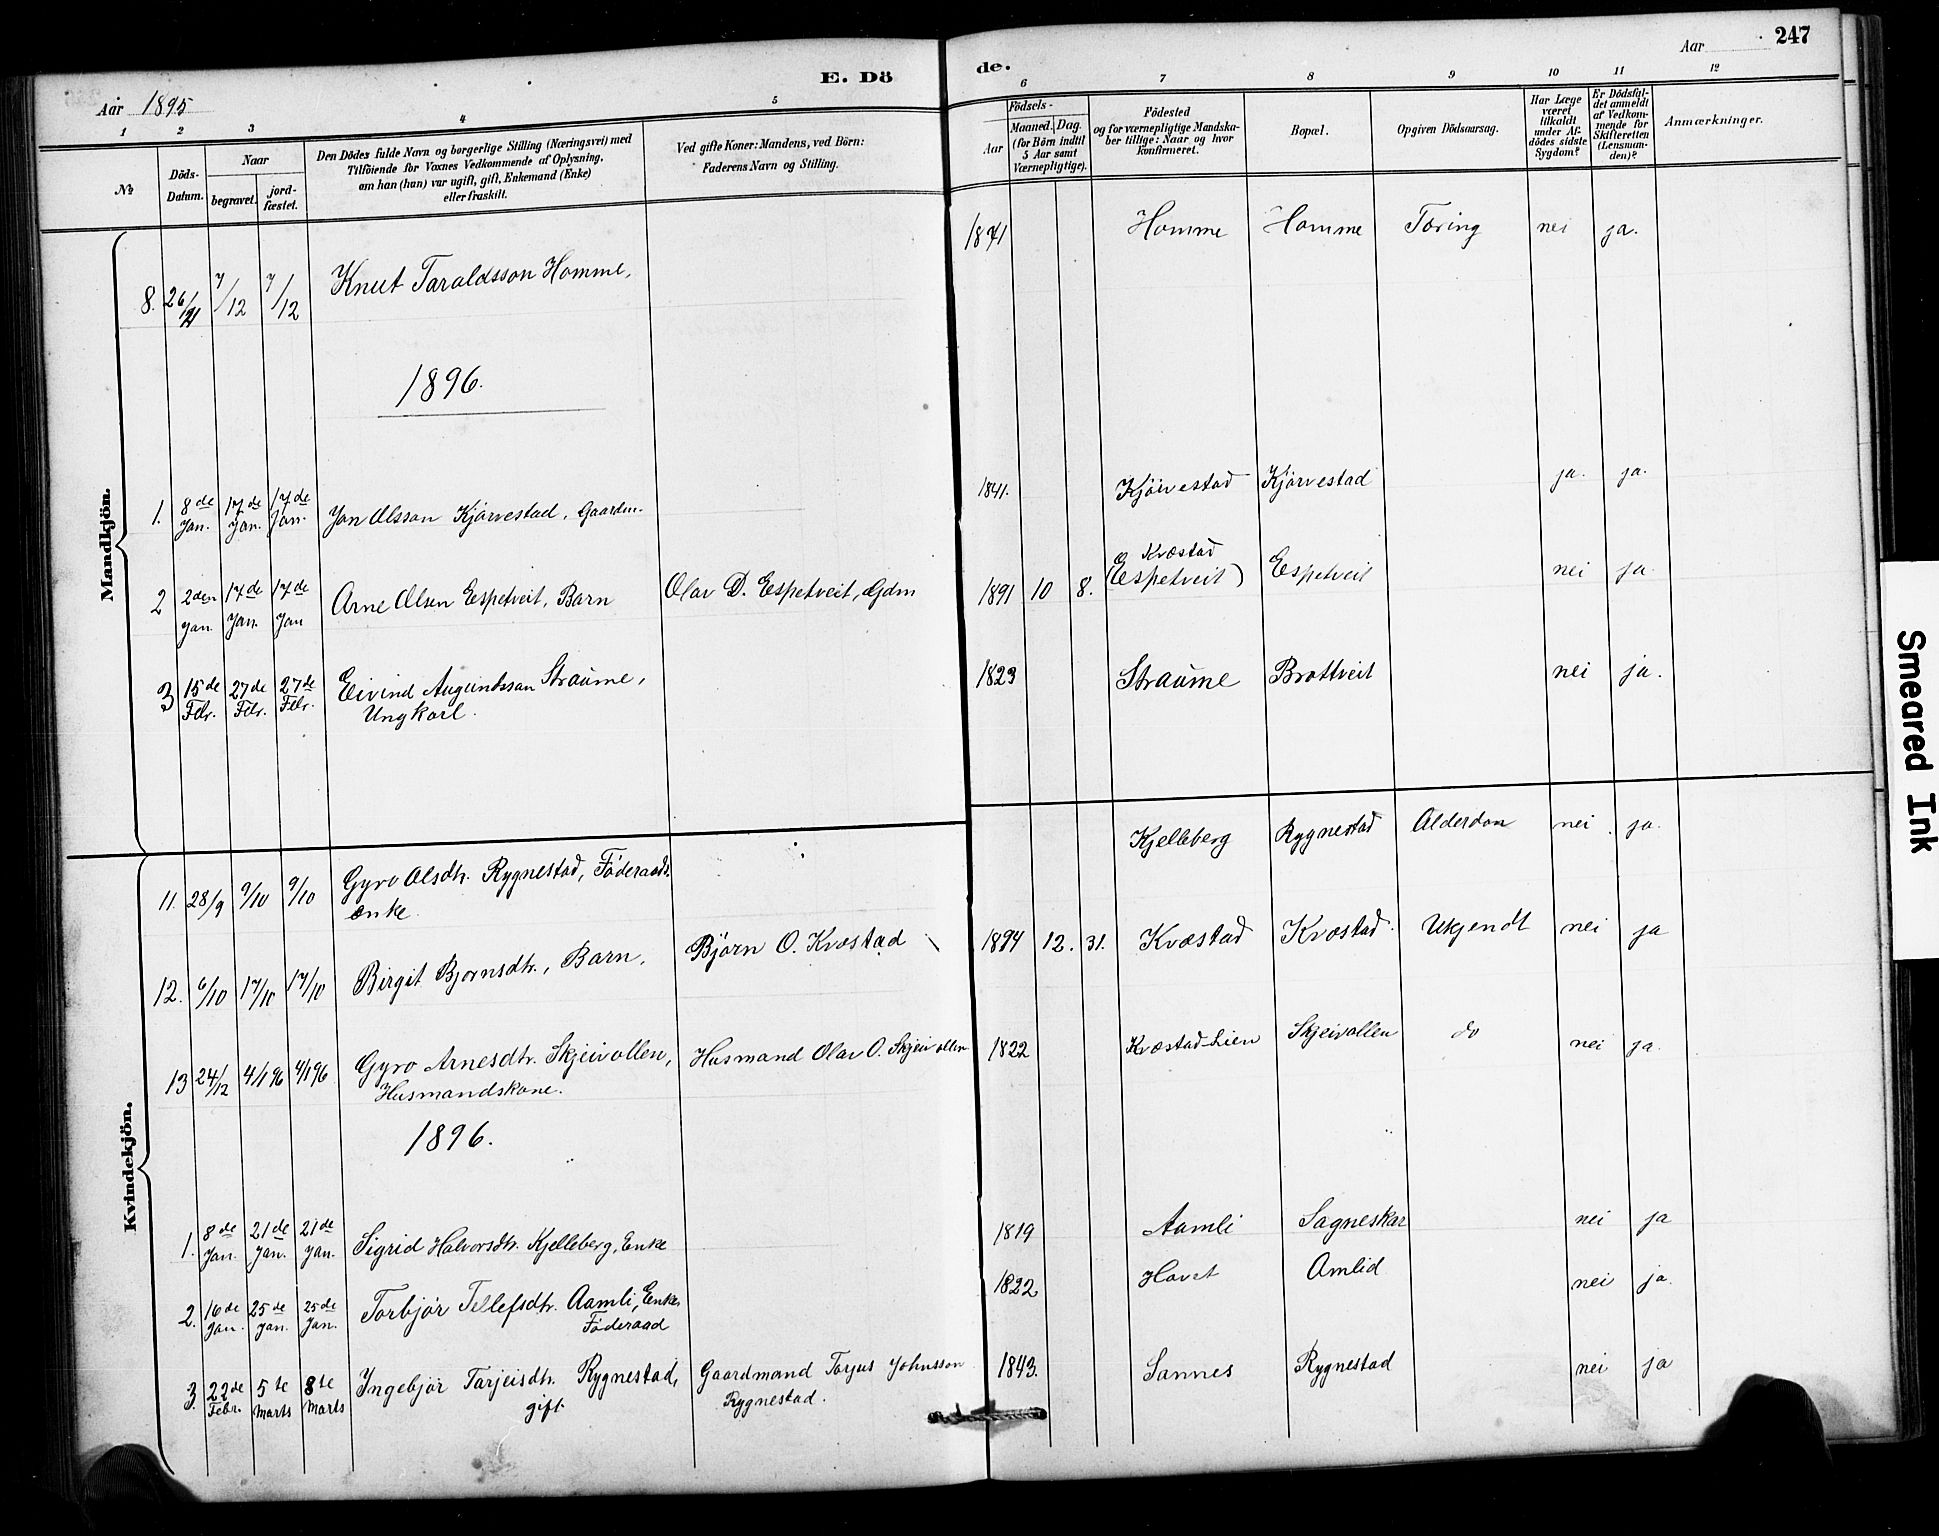 E. Dö de.
Aar 247
Aar 1895
1 2 3 4 5 6 7 8 9 10 11 12
№
Döds-Datum.
Naar
begravet.
jord-fæstet.
Den Dödes fulde Navn og borgerlige Stilling (Næringsvei) med
Tilföiende for Voxnes Vedkommende af Oplysning,
om han (hun) var ugift, gift, Enkemand (Enke)
eller fraskilt.
Ved gifte Koner: Mandens, ved Börn:
Faderens Navn og Stilling.
Födsels-
Aar
Maaned. Dag.
(for Börn indtil
5 Aar samt
Værnepligtige).
Födested
og for værnepligtige Mandska-
ber tillige: Naar og hvor
Konfirmeret.
Bopæl.
Opgiven Dödsaarsag.
Har Læge
været
tilkaldt
under Af-
dödes sidste
Sygdom?
Er Dödsfal-
det anmeldt
af Vedkom-
mende for
Skifteretten
(Lensman-
den)?
Anmærkninger.
Mandkjön.
8. 26/11 7/12 7/12 Knut Taraldsson Homme, 1871 Homme Homme Tæring nei ja.
1896.
1. 8de Jan. 17de Jan. 17de Jan. Jon Olsson Kjörvestad, Gaardm. 1841. Kjörvestad Kjörvestad ja. ja.
2 2den Jan. 17de Jan. 17de Jan Arne Olsen Espetveit, Barn Olav D. Espetveit, Gdm 1891 10 8. Kvæstad (Espetveit) Espetveit nei ja.
3 15de Febr. 27de Febr. 27de Febr. Eivind Augundsson Straume, 1823 Straume Brottveit nei ja.
Ungkarl.
Kvindekjön.
11. 28/9 9/10 9/10 Gyro Olsdtr. Rygnestad, Föderaads- Kjelleberg Rygnestad Alderdom nei ja.
enke.
12. 6/10 17/10 17/10 Birgit Bjornsdtr., Barn. Björn O. Kvæstad 1894 12. 31. Kvæstad Kvæstad Ukjendt nei ja
13 24/12 4/1 96 4/1 96 Gyro Arnesdtr. Skjeivollen, Husmand Olav O. Skjeivollen 1822 Kvæstad-Lien Skjeivollen do nei ja.
Husmandskone.
1896.
1. 8de Jan. 21de Jan. 21de Jan. Sigrid Halvorsdtr. Kjelleberg, Enke 1819 Aamli Sagneskar nei ja
2. 16de Jan. 25de Jan. 25de Jan. Torbjör Tellefsdtr. Aamli, Enke, 1822 Hovet Amlid nei ja.
Föderaad
3. 22de Febr. 5te Marts 8te Marts Ingebjör Tarjeisdtr. Rygnestad, Gaardmand Torjus Johnsson 1843. Sannes Rygnestad nei ja
gift. Rygnestad.
Smeared Ink